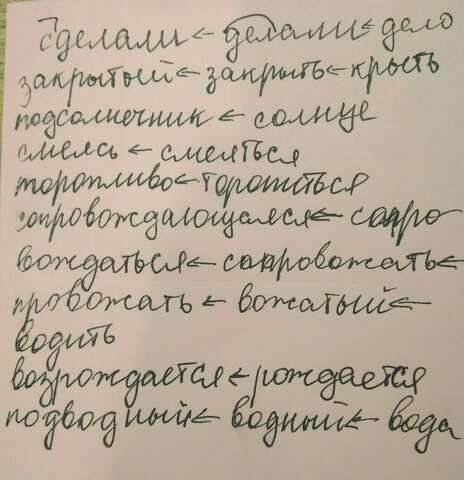 сделали ← делали ← дело
закрытый ← закрыть ← крыть
подсолнечник ← солнце
смеясь ← смеяться
торопливо ← торопиться
сопровождающемся ← сопро
вождаться ← сопровожать ←
провожать ← вожатый ←
водить
возрождается ← рождается
подводный ← водный ← вода